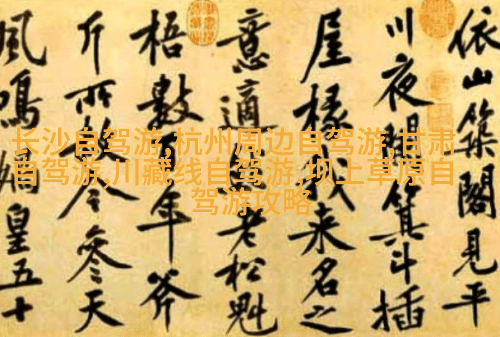 依山築閣見平
川夜闌箕斗插
屋椽我来名之
意適然老松魁
梧數百年斧
斤所赦今參天
風鳴媧皇五十
长沙自驾游,杭州周边自驾游,甘肃
自驾游,川藏线自驾游,坝上草原自
驾游攻略